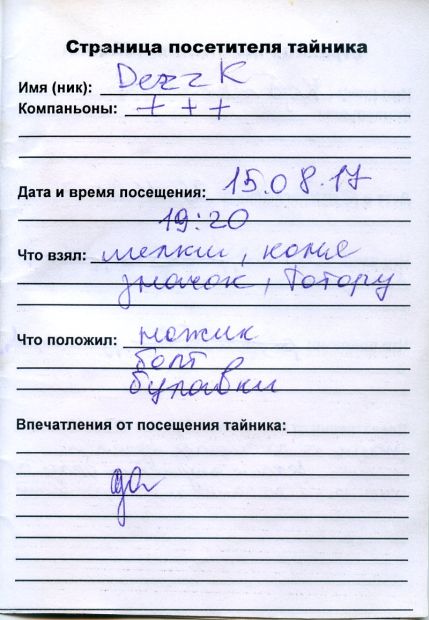 Страница посетителя тайника
Имя (ник): DezzK
Компаньоны: + + +
Дата и время посещения: 15.08.17
19:20
Что взял: мелки, копье
значок, Тотору
Что положил: ножик
болт
булавки
Впечатления от посещения тайника:
да